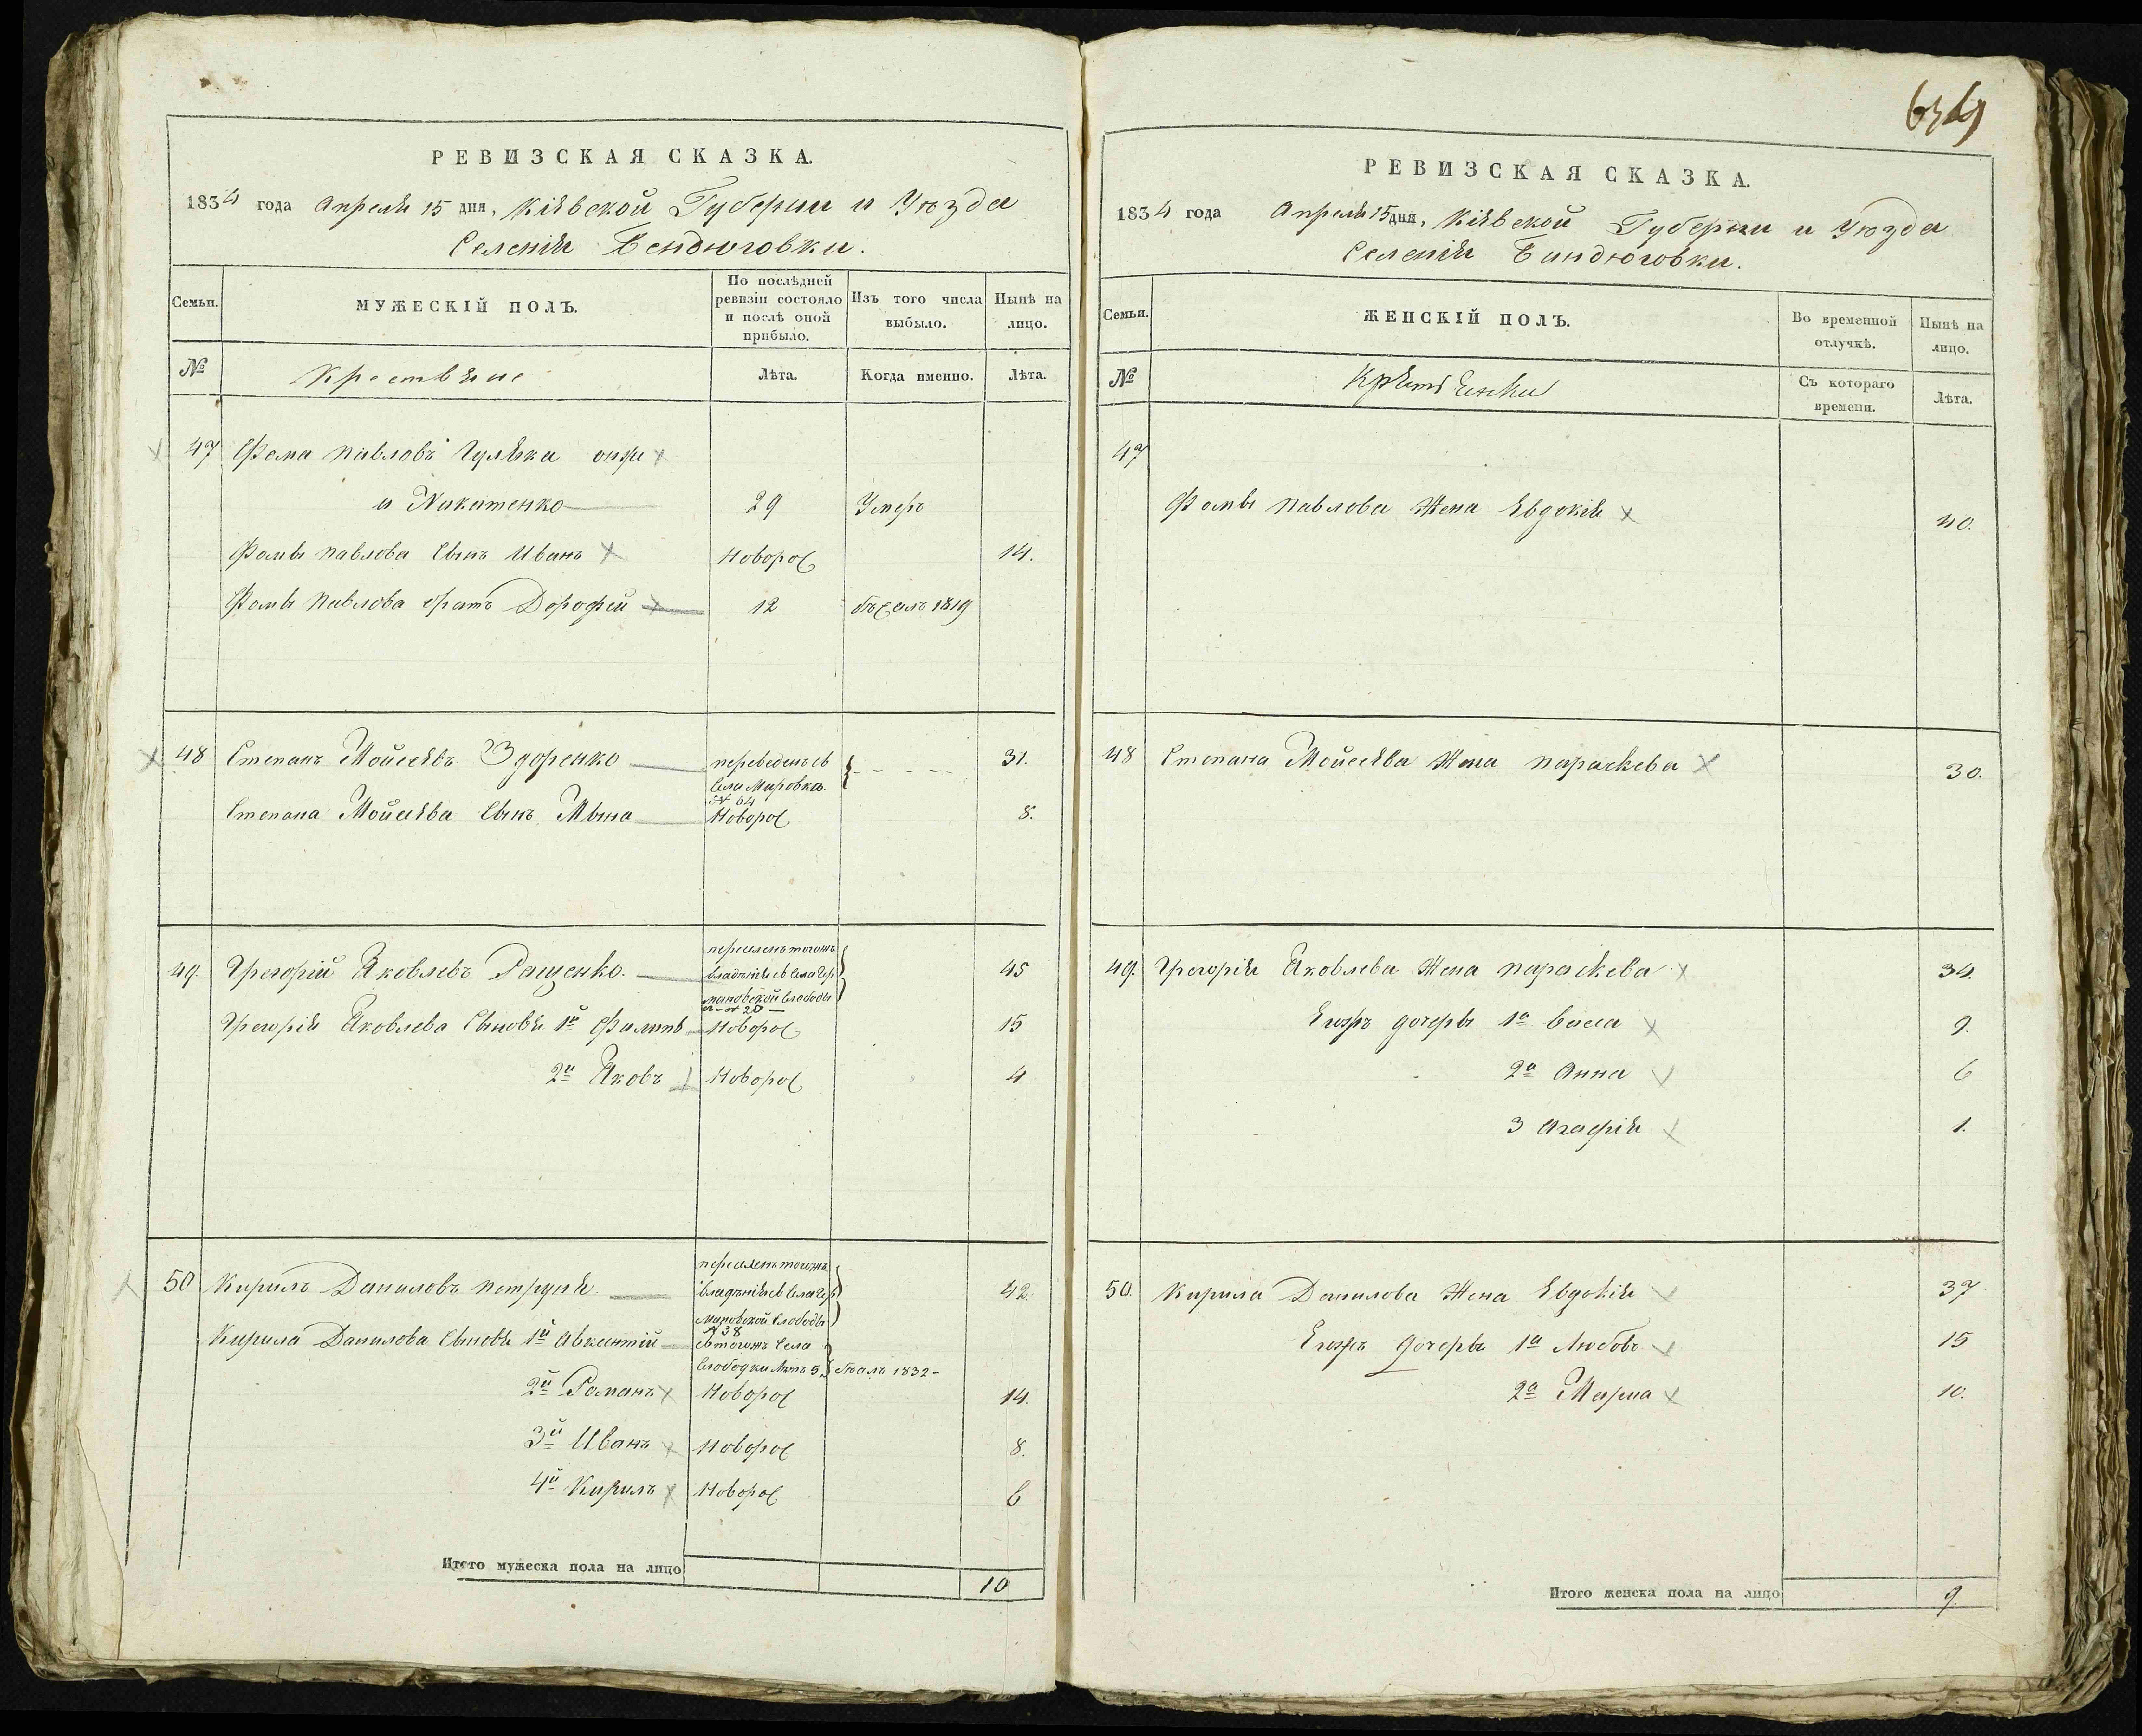 РЕВИЗСКАЯ СКАЗКА.
1834 года Апреля 15 дня, Кіевской Губерніи и Уѣзда
Селенія Бендюговки.
Семьи.
МУЖЕСКІЙ ПОЛЪ.
По послѣдней
ревизіи состояло
и послѣ оной
прибыло.
Изъ того числа
выбыло.
Нынѣ на
лицо.
№
Крестьяне
Лѣта.
Когда именно.
Лѣта.
47 Фома Павловъ онже
и Никитенко 29 Умеръ
Фомы Павлова Сынъ Иванъ Новорож 14.
Фомы Павлова братъ Дорофей 12 бѣжалъ 1819
48 Степанъ Мойсеевъ Здоренко переведенъ съ 31.
Села Мировки
№ 64
Степана Мойсеева Сынъ Мина Новорож 8.
переселенъ тогожъ
49. Григорій Яковлевъ Ращенко. владѣнія съ села Гер 45
мановской Слободы
№ 20
Григорія Яковлева Сыновя 1й Филипъ Новорож 15
2й Яковъ Новорож 4
переселенъ тогожъ
50 Кирилъ Даниловъ Петруня. владѣнія съ села Гер 42.
мановской Слободы
№ 38
Кирила Данилова Сыновя 1й Авксентій стогожъ Села
Слободки Лѣтъ 5. бѣжалъ 1832
2й Романъ Новорож 14.
3й Иванъ Новорож 8.
4й Кирилъ Новорож 6
Итого мужеска пола на лицо 10
РЕВИЗСКАЯ СКАЗКА.
1834 года Апреля 15 дня, Кіевской Губерніи и Уѣзда
Селенія Биндюговки.
Семьи.
ЖЕНСКІЙ ПОЛЪ.
Во временной
отлучкѣ.
Нынѣ на
лицо.
№
Крестьянки
Съ котораго
времени.
Лѣта.
47
Фомы Павлова Жена Евдокія 40.
48 Степана Мойсеева Жена Параскева 30.
49. Григорія Яковлева Жена Параскева 34.
Егожъ дочеры 1а Васса 9.
2а Анна 6
3 Агафія 1.
50. Кирила Данилова Жена Евдокія 37
Егожъ дочеры 1а Любовъ 15
2а Марина 10.
Итого женска пола на лицо 9.